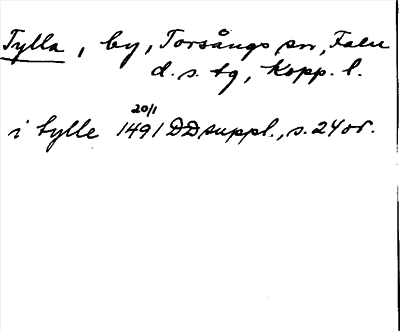 Tylla, by, Torsångs sn, Falu
d.s. tg, Kopp. l.
20/1
i tylle 1491 DDsuppl., s. 24 or.